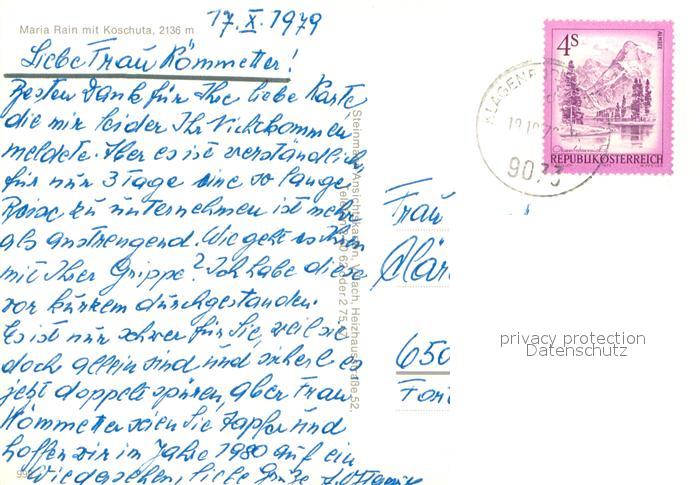 Maria Rain mit Koschuta, 2136 m
17. X. 1979
Liebe Frau Kömmetter!
Besten Dank für Ihre liebe Karte
die mir leider Ihr Nichtkommen
meldete. Aber es ist verständlich
für nur 3 Tage eine so lange
Reise zu unternehmen ist mehr
als anstrengend. Wie geht es Ihnen
mit Ihrer Grippe? Ich habe diese
vor kurzem durchgestanden.
Es ist nur schwer für Sie, weil sie
doch allein sind und sicherl. es
jetzt doppelt spüren, aber Frau
Kömmetter seien Sie tapfer und
hoffen wir im Jahre 1980 auf ein
Wiedersehen, liebe Grüße
992
Steinmann Ansichtskarten, Villach, Heizhausstraße 52,
Frau
Clär
650
KLAGENFURT
19.10.79
9073
4S
ALMSEE
REPUBLIK ÖSTERREICH
privacy protection
Datenschutz